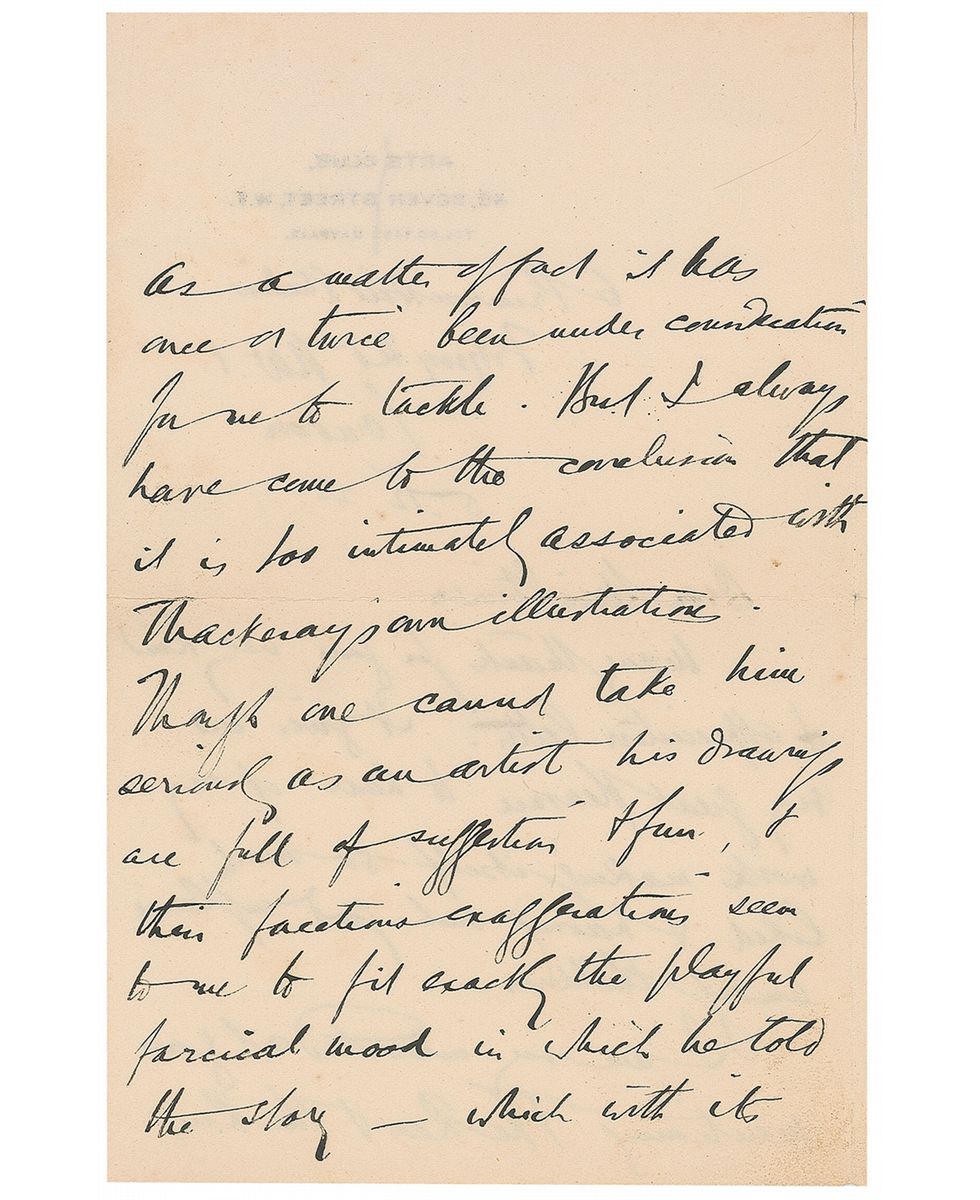 As a matter of fact it has
once or twice been under consideration
for me to tackle. But I always
have come to the conclusion that
it is too intimately associated with
Thackeray's own illustrations.
Though one cannot take him
seriously as an artist his drawings
are full of suggestion & fun, &
their facetious exaggerations seem
to me to fit exactly the playful
farcical mood in which he told
the story — which with its